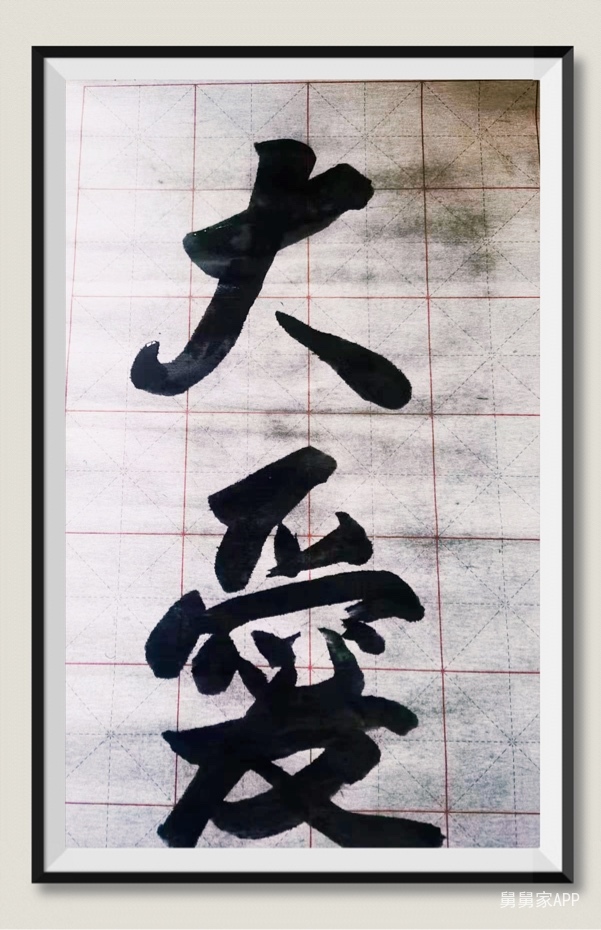 大
愛
舅舅家APP